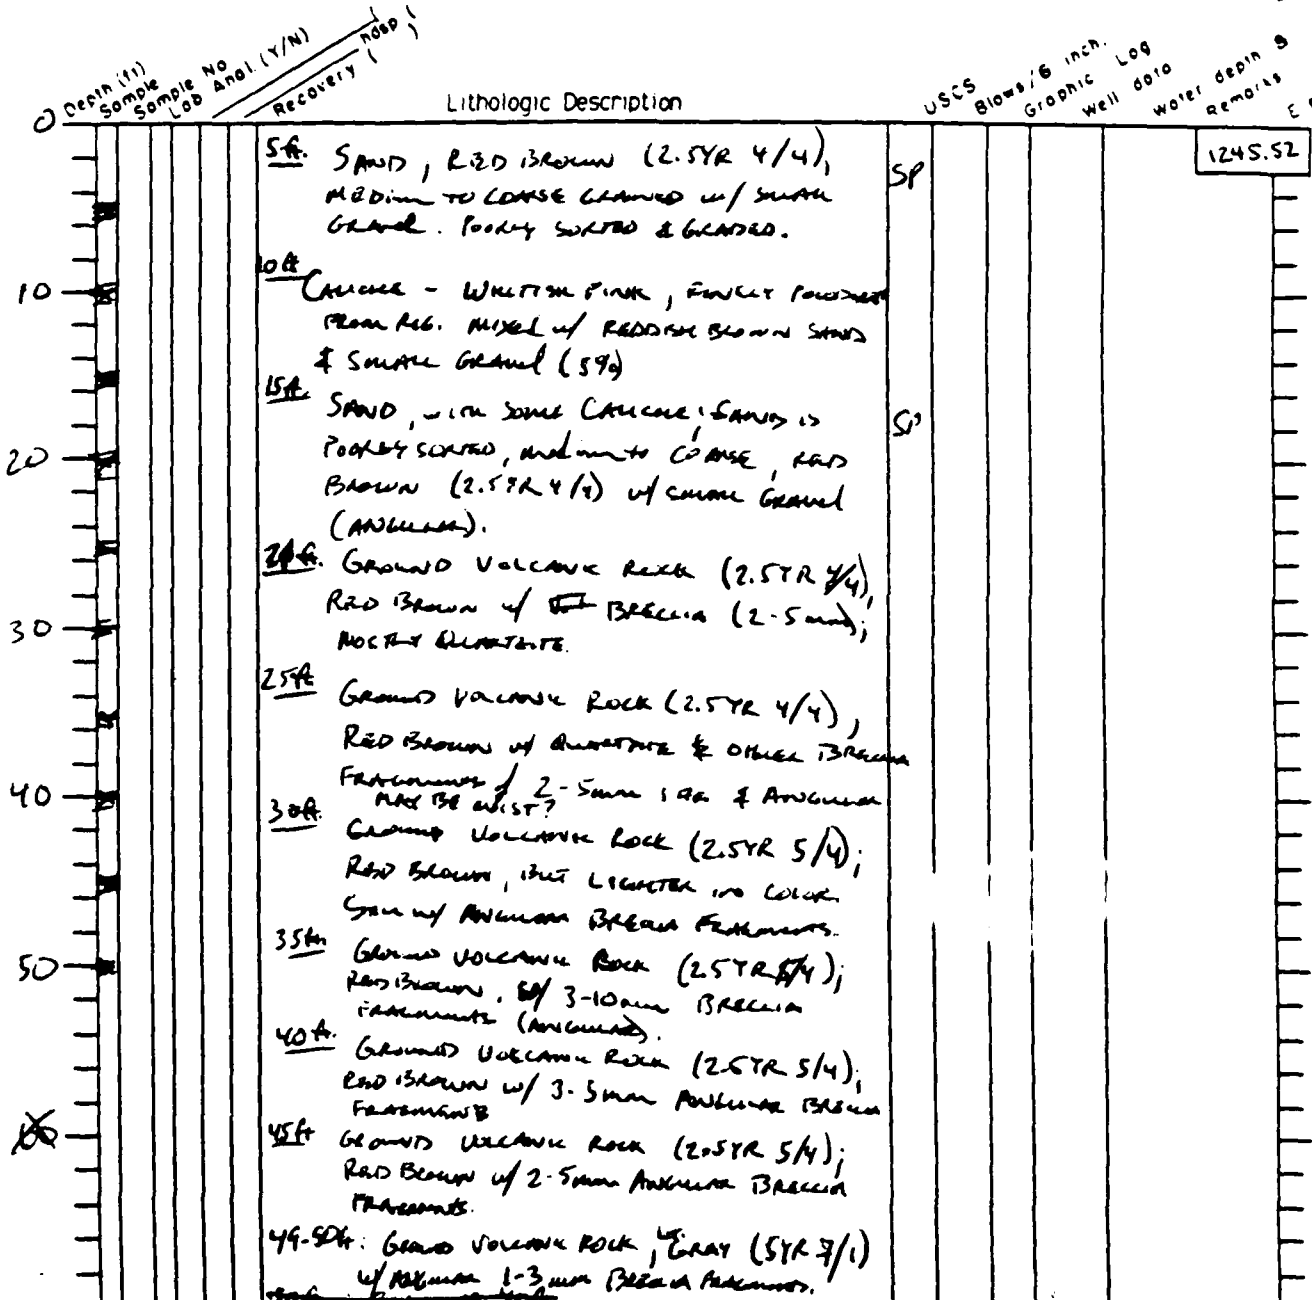 Depth (ft)
Sample
Sample No
Lab Anal. (Y/N)
Recovery
Lithologic Description
USCS
Blows/6 inch.
Graphic Log
Well data
Water depth &
Remarks
0
1245.52
5ft. SAND, RED BROWN (2.5YR 4/4), SP
MEDIUM TO COARSE GRAINED w/ SMALL
GRAVEL. POORLY SORTED & GRADED.
10ft
10
CALICHE - WHITISH PINK, FINELY POWDERED
FROM RIG. MIXED w/ REDDISH BROWN SAND
& SMALL GRAVEL (5%)
15ft.
SAND, WITH SOME CALICHE; SAND IS SP
20
POORLY SORTED, medium to COARSE, RED
BROWN (2.5YR 4/4) w/ SMALL GRAVEL
(ANGULAR).
ft. GROUND VOLCANIC ROCK (2.5YR 4/4),
RED BROWN w/ BRECCIA (2-5mm);
30
MOSTLY QUARTZITE.
25ft
GROUND VOLCANIC ROCK (2.5YR 4/4),
RED BROWN w/ QUARTZITE & OTHER BRECCIA
FRAGMENTS 2-5mm & ANGULAR
40
MAY BE MOIST?
30ft.
GROUND VOLCANIC ROCK (2.5YR 5/4);
RED BROWN, BUT LIGHTER IN COLOR.
w/ ANGULAR BRECCIA FRAGMENTS.
35ft
50
GROUND VOLCANIC ROCK (2.5YR 5/4);
RED BROWN, w/ 3-10mm BRECCIA
FRAGMENTS (ANGULAR).
40ft.
GROUND VOLCANIC ROCK (2.5YR 5/4);
RED BROWN w/ 3-5mm ANGULAR BRECCIA
FRAGMENTS
45ft GROUND VOLCANIC ROCK (2.5YR 5/4);
RED BROWN w/ 2-5mm ANGULAR BRECCIA
FRAGMENTS.
49-50ft: GROUND VOLCANIC ROCK, LT. GRAY (5YR 7/1)
w/ ANGULAR 1-3mm BRECCIA FRAGMENTS.